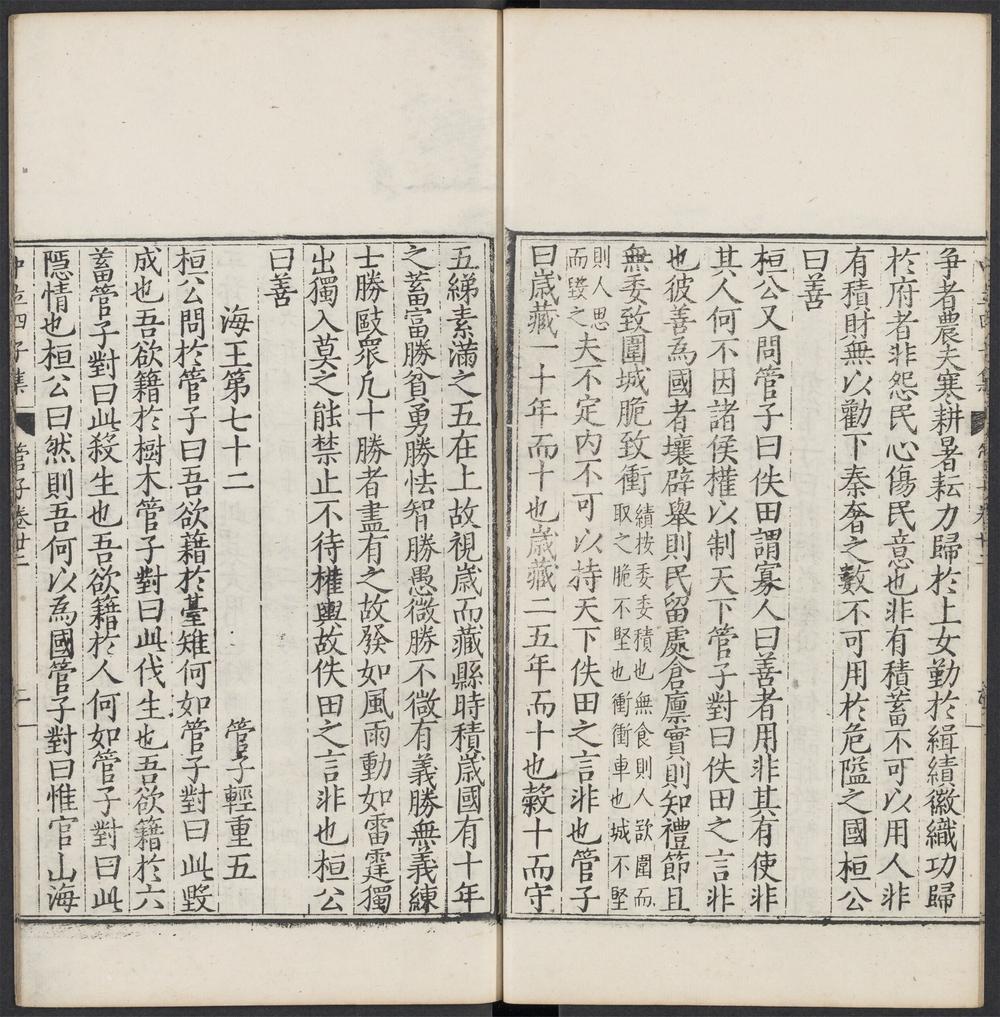 争者農夫寒耕暑耘力歸於上女勤於緝績徽織功歸
於府者非怨民心傷民意也非有積蓄不可以用人非
有積財無以勸下秦奢之數不可用於危隘之國桓公
曰善
桓公又問管子曰佚田謂寡人曰善者用非其有使非
其人何不因諸侯權以制天下管子對曰佚田之言非
也彼善為國者壤辟舉則民留處倉廪實則知禮節且
無委致圍城脆致衝績按委委積也無食則人歃圍而
取之脆不堅也衝衝車也城不堅
則人思
而毀之夫不定内不可以持天下佚田之言非也管子
曰歲藏一十年而十也歲藏二五年而十也穀十而守
五綈素滿之五在上故視歲而藏縣時積歲國有十年
之蓄富勝貧勇勝怯智勝愚微勝不微有義勝無義練
士勝敺眾凡十勝者盡有之故發如風雨動如雷霆獨
出獨入莫之能禁止不待權輿故佚田之言非也桓公
曰善
海王第七十二 管子輕重五
桓公問於管子曰吾欲籍於臺雉何如管子對曰此毀
成也吾欲籍於樹木管子對曰此伐生也吾欲籍於六
畜管子對曰此殺生也吾欲籍於人何如管子對曰此
隱情也桓公曰然則吾何以為國管子對曰惟官山海
中立四子集 管子卷廿二